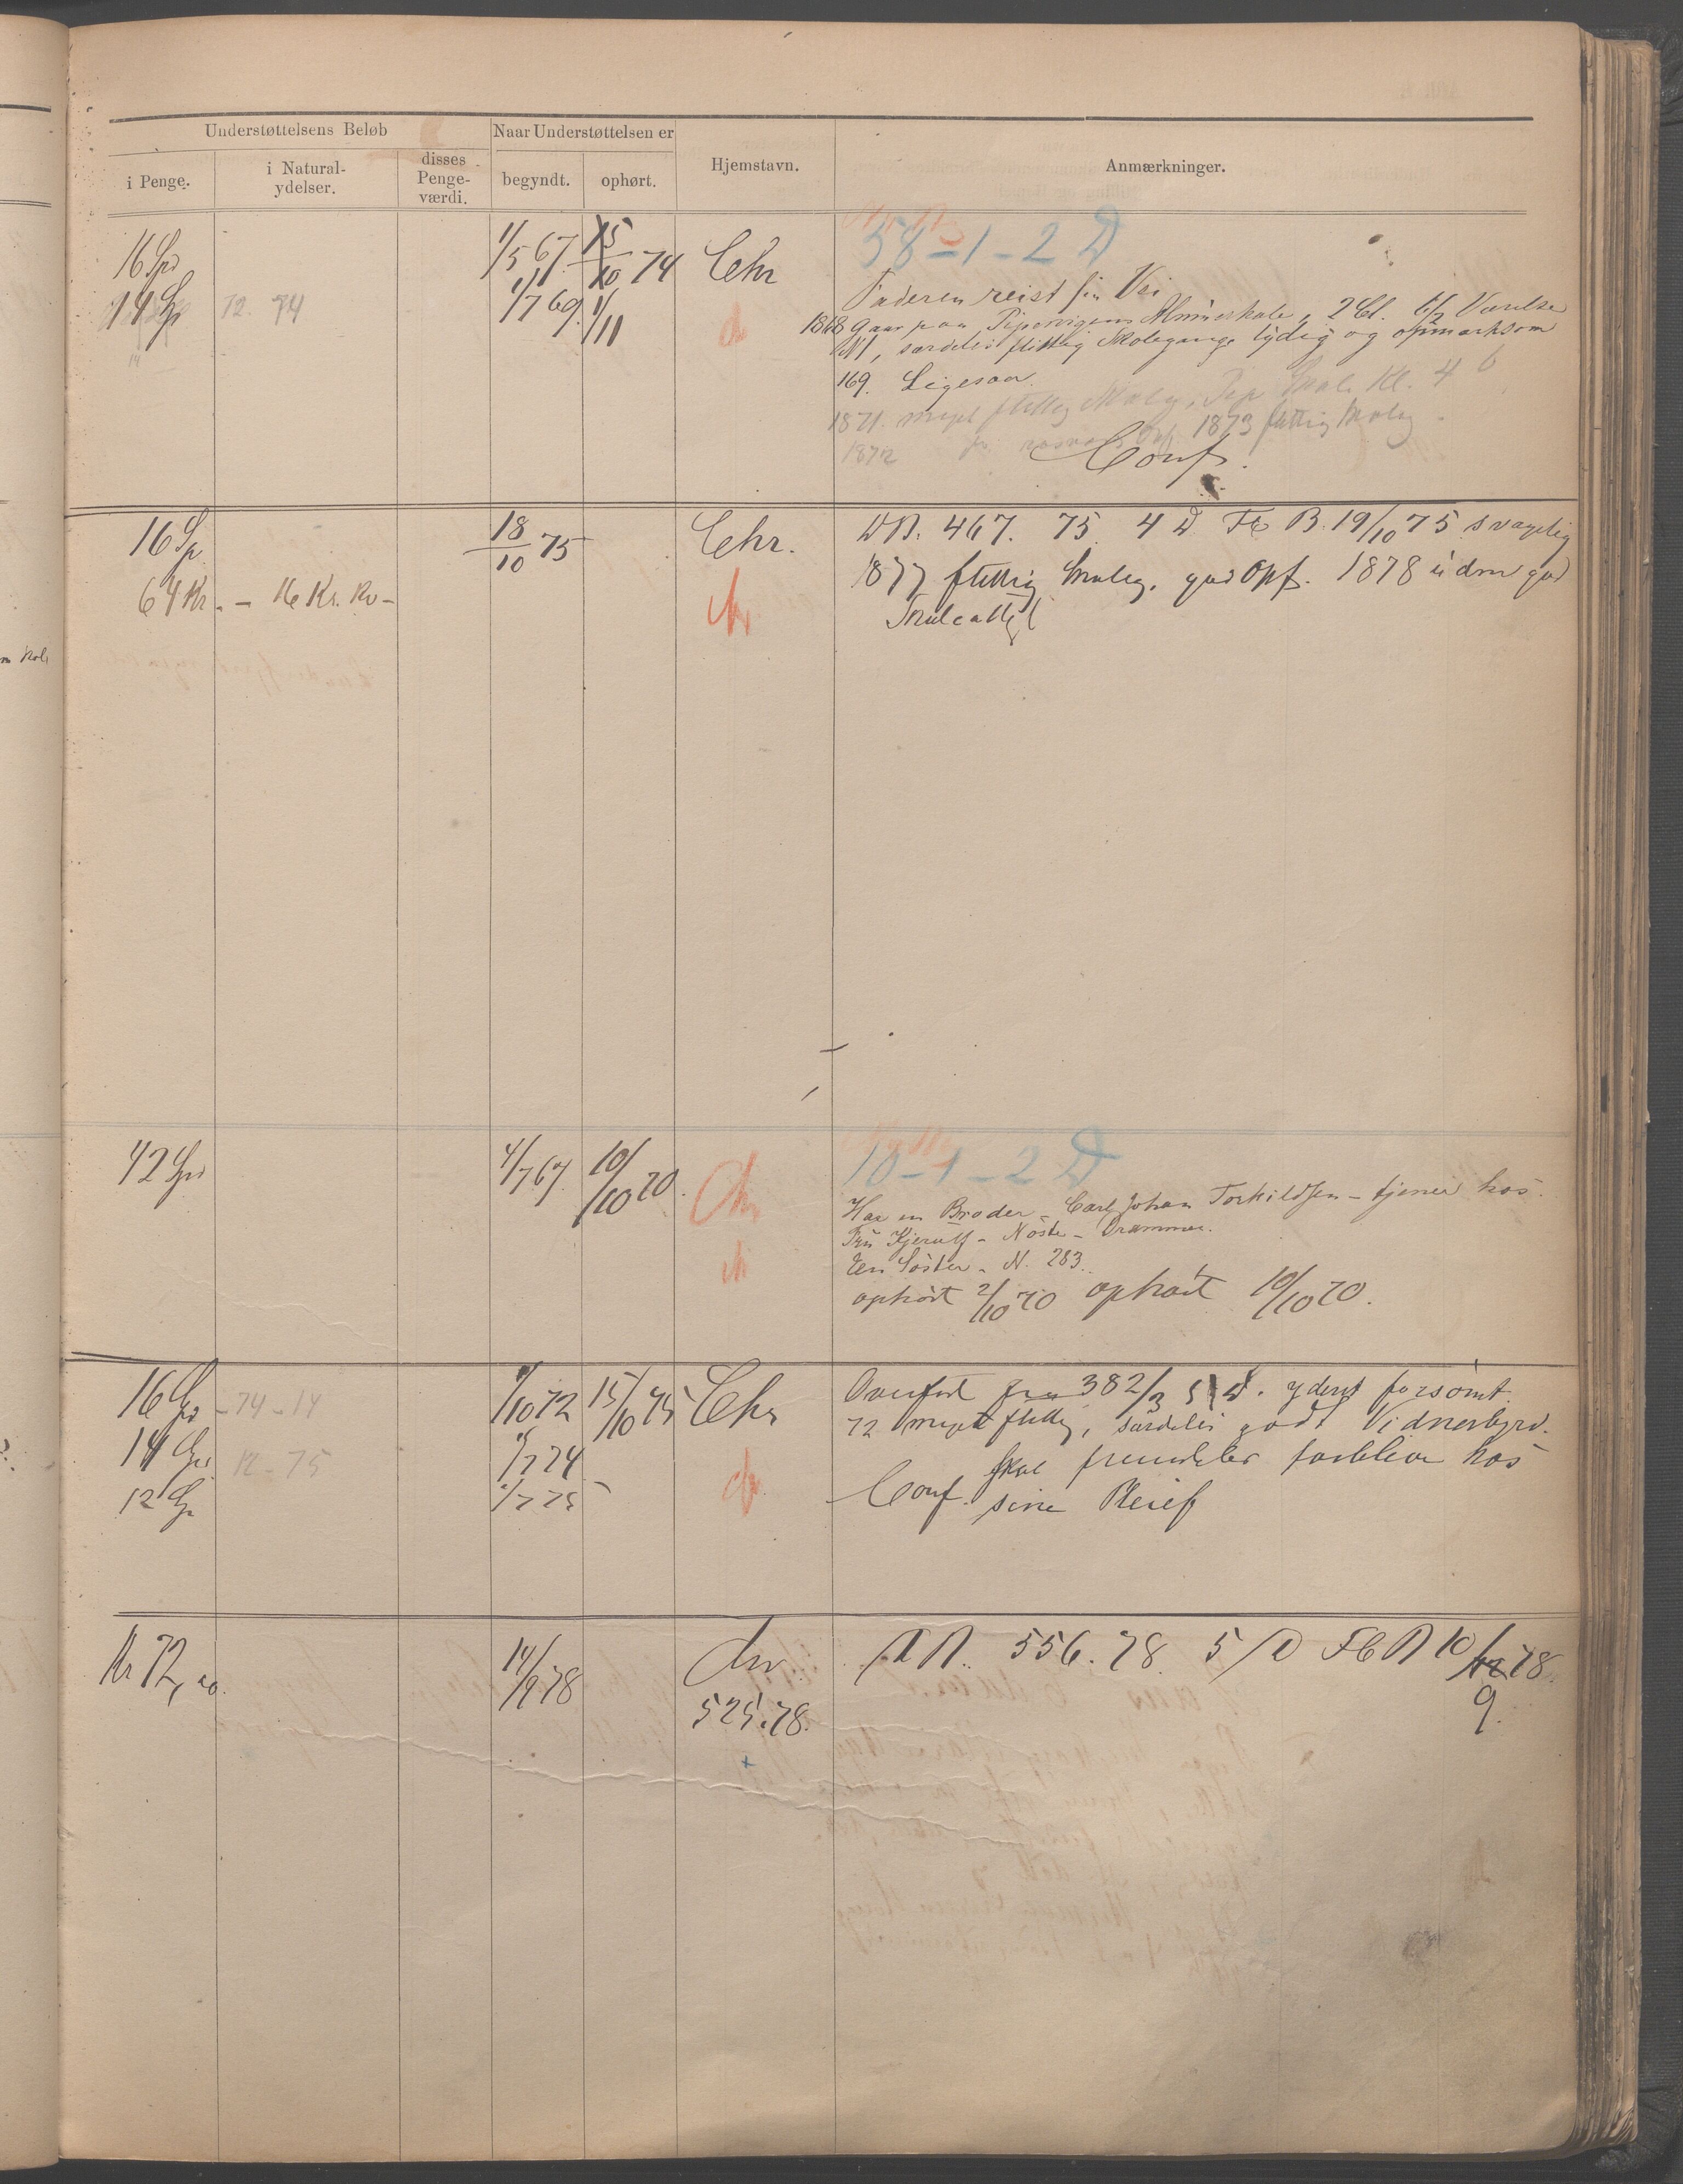 Understøttelsens Beløb
Naar Understøttelsen er
Hjemstavn.
Anmærkninger.
i Penge.
i Natural-
ydelser.
disses
Penge-
værdi.
begyndt.
ophørt.
16 Spd
1/5 67.
15/10 74
Chr
58-1-2 D
14 Sp
12 74
1/7 69.
1/11
Faderen reist sin Vei
1868 9 aar paa Pipervigens Almueskole, 2 Cl. Værelse
N1, særdeles flittig Skolegang, lydig og opmærksom
169. Ligesaa.
1871. meget flittig Skoleg. Pip Skole Kl. 4 b
1872 1873 flittig Skoleg.
Conf.
16 Sp
18/10 75
Chr.
D N. 467. 75. 4 D F B. 19/10 75 svagelig
64 Kr. - 16 Kr. Kv-
Chr
1877 flittig Skoleg. god Opf. 1878 udm god
Skoleatt
42 Spd
4/7 67
10/10 70.
Chr
10-1-2 D
Har en Broder - Carl Johan Torkildsen - tjener hos
Fru Kjerulf - Nøste - Drammen.
Een Søster - N. 283.
ophørt 2/10 70 ophørt 10/10 70.
16 Spd
-74-14
1/10 72
15/10 75
Chr
Overført fra 382/3 5 D. ydert forsømt.
72 meget flittig, særdeles godt Vidnesbyrd.
14 Spd
12-75
1/7 74
skal fremdeles forblive hos
12 Sp
1/7 75
Conf. sine Pleief
Kr 72,00.
14/9 78
Chr
525.78.
D N. 556.78. 5/D F N 10/12 78.
9.